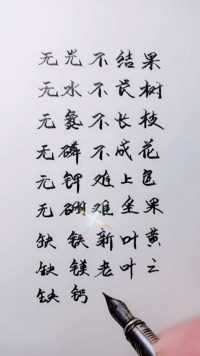 无光不结果
无水不长树
无氮不长枝
无磷不成花
无钾难上色
无硼难坐果
缺铁新叶黄
缺镁老叶
缺钙